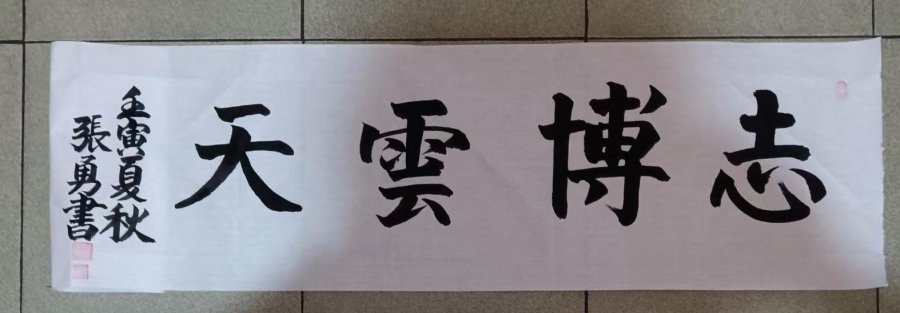 志博雲天
壬寅夏秋
張勇書